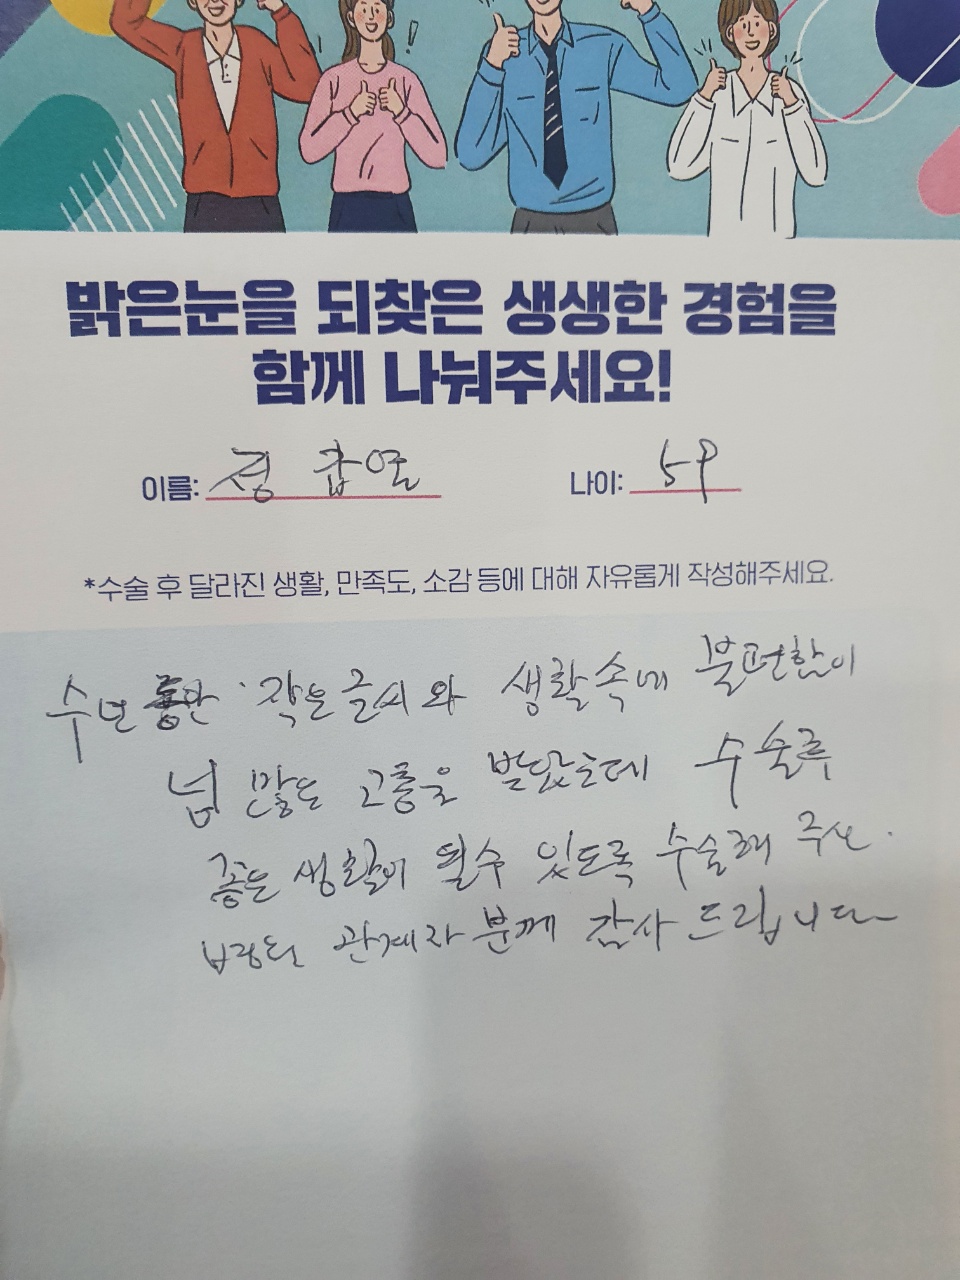 밝은눈을 되찾은 생생한 경험을
함께 나눠주세요!
이름: 정 갑열 나이: 59
*수술 후 달라진 생활, 만족도, 소감 등에 대해 자유롭게 작성해주세요.
수년 동안 작은 글씨와 생활속에 불편함이
넘 많은 고통을 받았는데 수술후
좋은 생활이 될수 있도록 수술해 주신.
병원 관계자 분께 감사 드립니다